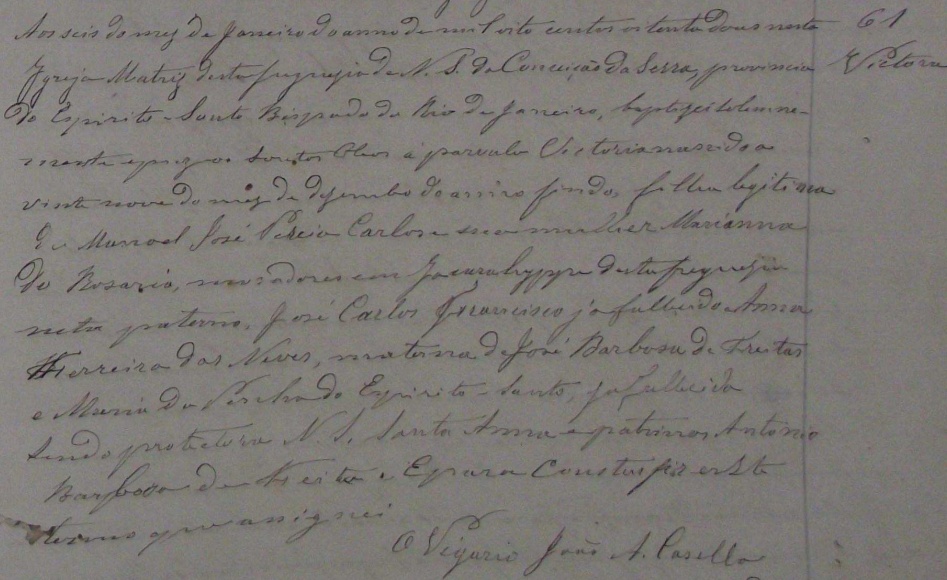 Aos seis do mez de Janeiro do anno de mil oito centos oitenta dous nesta 61
Igreja Matriz desta freguezia de N. S. da Conceição da Serra, provincia Victoria
do Espirito-Santo Bispado do Rio de Janeiro, baptizei solemne-
mente e puz os Santos Oleos a parvula Victoria nascida a
vinte nove do mez de dezembo do anno findo, filha legitima
de Manoel José Carlos e sua mulher Marianna
do Rosario, moradores em Jacarahyppe desta freguezia
neta paterna, José Carlos Francisco já fallecido e Anna
Ferreira das Neves, materna de José Barbosa de Freitas
e Maria da do Espirito-Santo, já fallecida
Sendo protectora N. S. Santa Anna e patrinos Antonio
Barbosa de E para Constar fiz este
termo que assignei
O Vigario João A. Casella